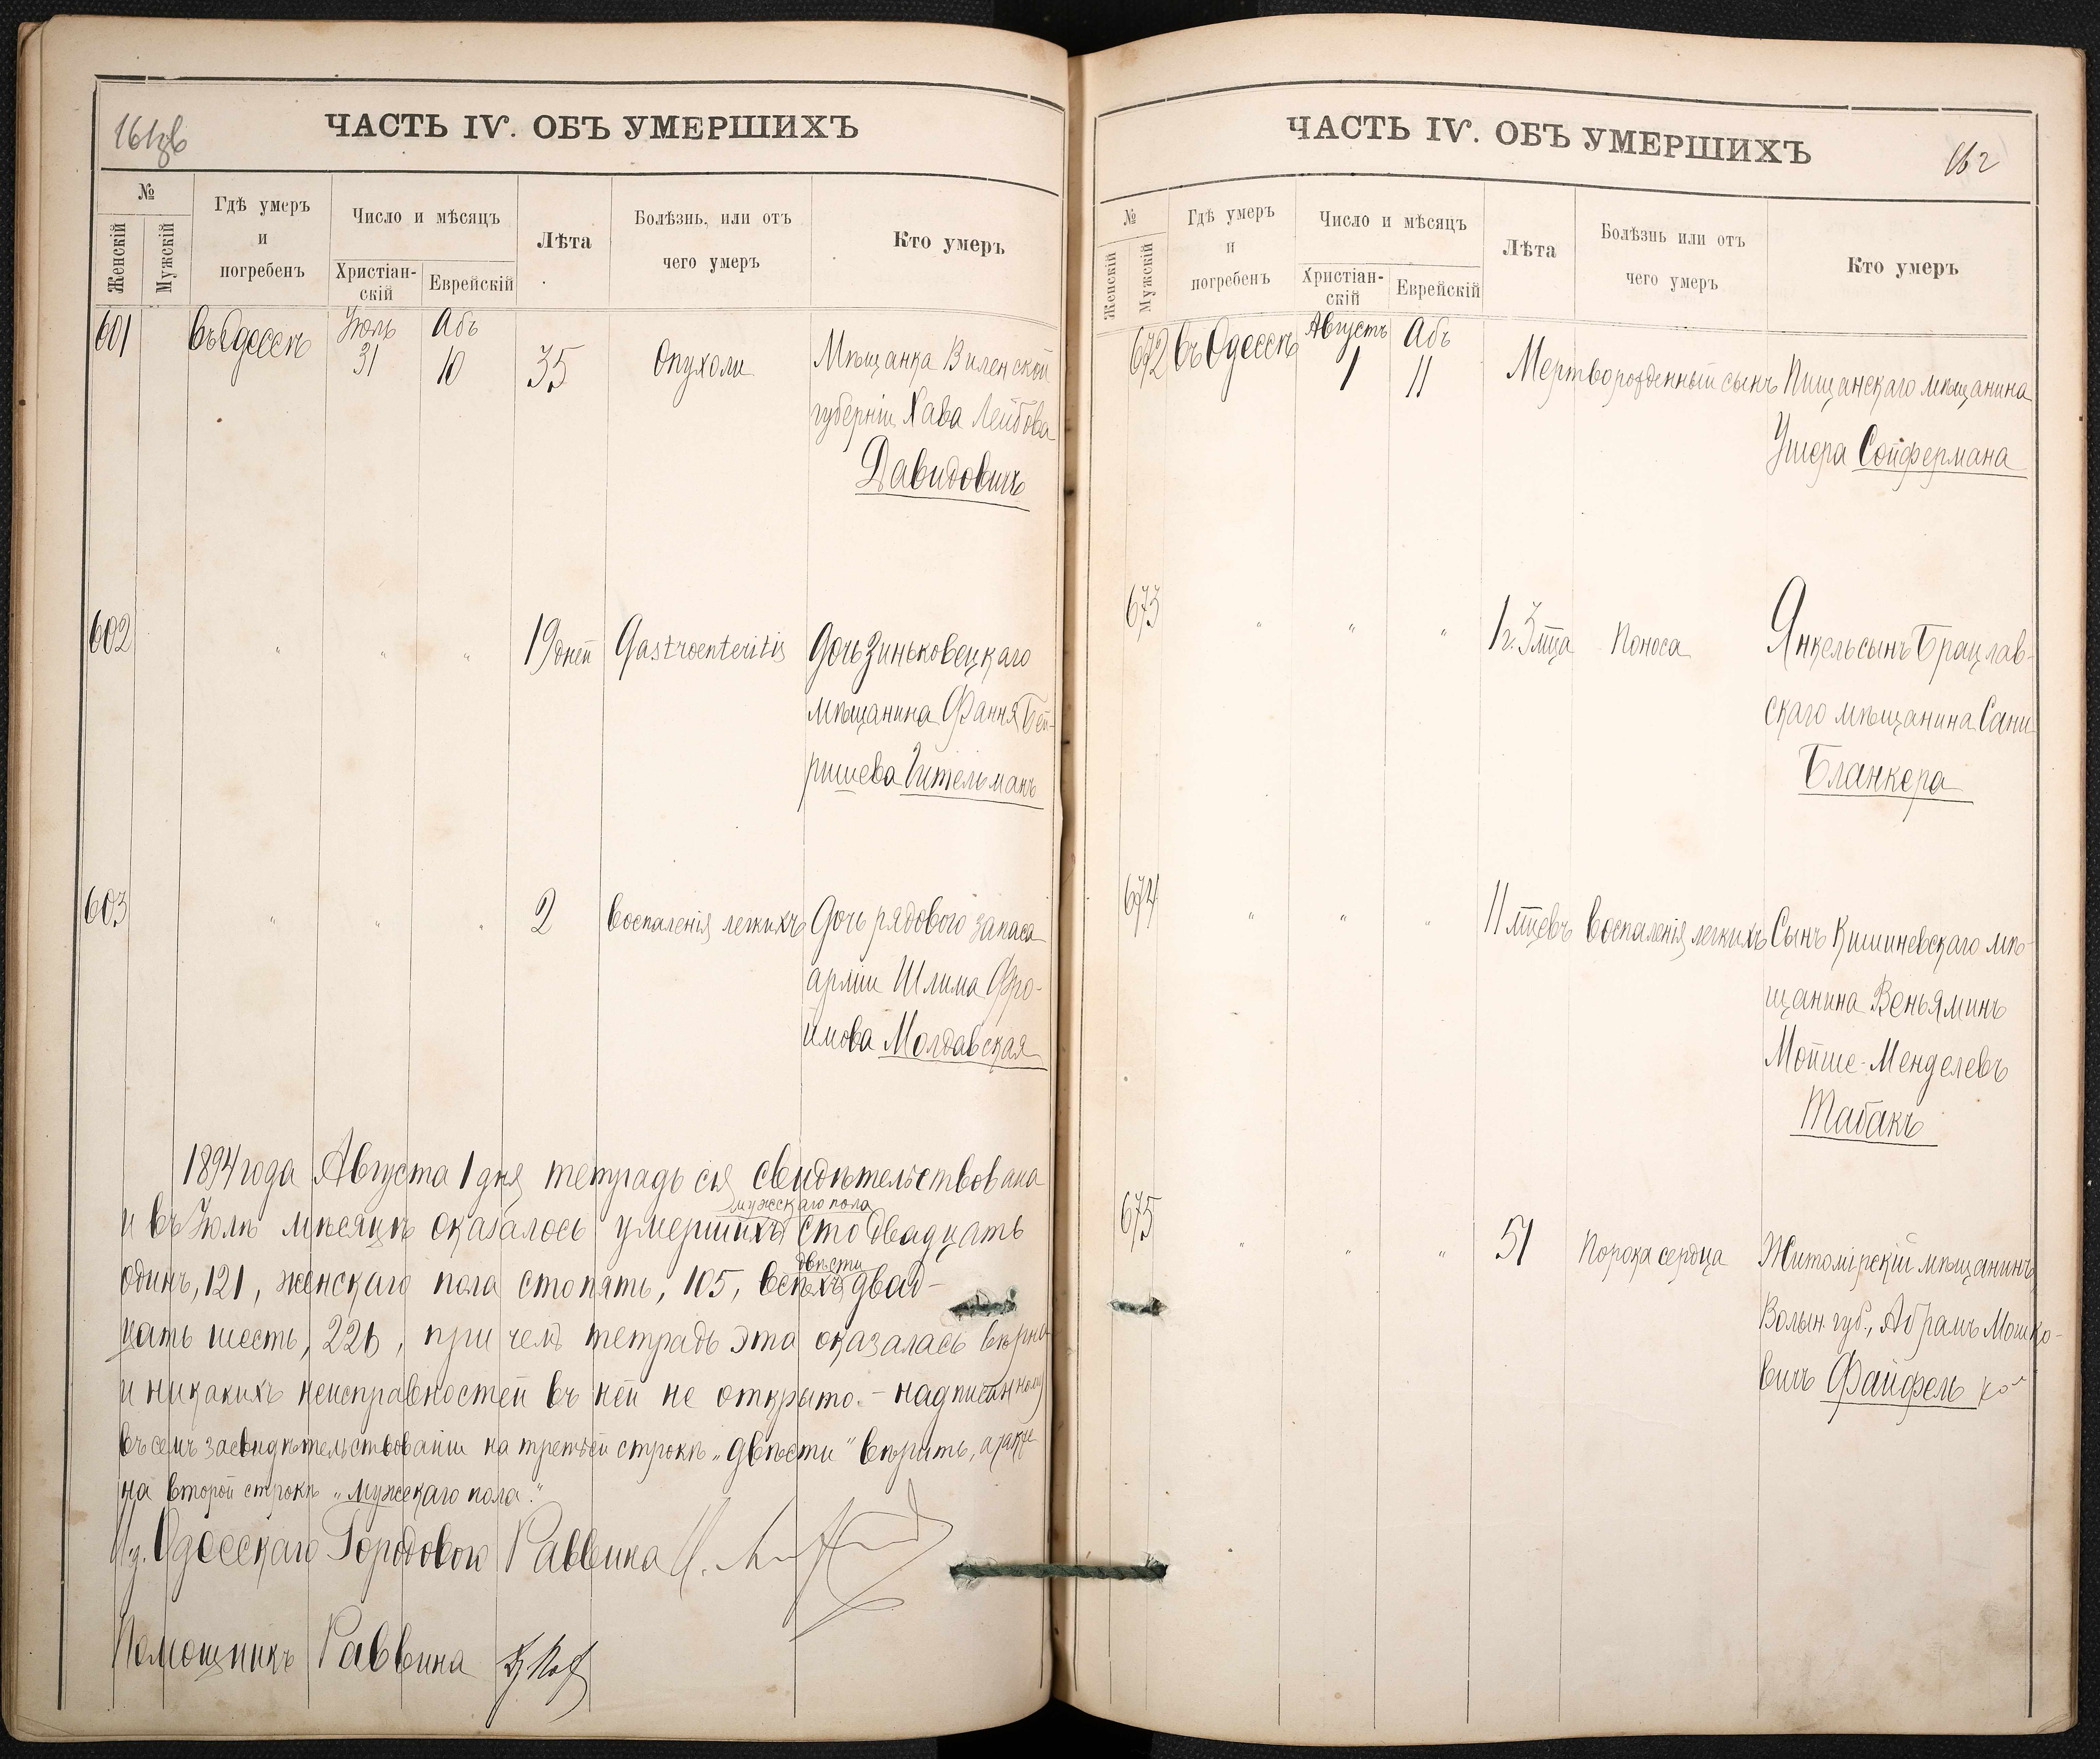 ЧАСТЬ IV. ОБЪ УМЕРШИХЪ
№
Женскій
Мужскій
Гдѣ умеръ
и
погребенъ
Число и мѣсяцъ
Христіан-
скій
Еврейскій
Лѣта
Болѣзнь, или отъ
чего умеръ
Кто умеръ
601 въ Одессѣ Іюль 31 Абъ 10 35 Опухоли Мѣщанка Виленской
губерніи Хава Лейбова
Давидовичъ
602 " " " 19 дней Gastroenteritis Дочь Зиньковецкаго
мѣщанина Фання Бей-
ришева Гительманъ
603 " " " 2 Воспаленія легкихъ Дочь рядового запаса
арміи Шлима Фро-
имова Молдавская
1894 года Августа 1 дня тетрадь сія свидѣтельствована
мужскаго пола
и въ Іюлѣ мѣсяцѣ оказалось умершихъ сто двадцать
двѣсти
одинъ, 121, женскаго пола сто пять, 105, всѣхъ двад-
цать шесть, 226, при чемъ тетрадь эта оказалась вѣрна
и никакихъ неисправностей въ ней не открыто.- надписанному
въ семъ засвидѣтельствованіи на третьей строкѣ „двѣсти" вѣрить, также
на второй строкѣ „мужскаго пола."
И.д. Одесскаго Городового Раввина
Помощникъ Раввина
ЧАСТЬ IV. ОБЪ УМЕРШИХЪ
162
№
Женскій
Мужскій
Гдѣ умеръ
и
погребенъ
Число и мѣсяцъ
Христіан-
скій
Еврейскій
Лѣта
Болѣзнь или отъ
чего умеръ
Кто умеръ
672 въ Одессѣ Августъ 1 Абъ 11 Мертворожденный сынъ Пищанскаго мѣщанина
Ушера Сойфермана
673 " " " 1 г. 3 мца Поноса Янкель сынъ Брацлав-
скаго мѣщанина Сани
Бланкера
674 " " " 11 мцевъ Воспаленія легкихъ Сынъ Кишиневскаго мѣ-
щанина Веньяминъ
Мойше-Менделевъ
Табакъ
675 " " " 51 Порока сердца Житомірскій мѣщанинъ
Волын. губ., Абрамъ Мошко-
вичъ Файфель